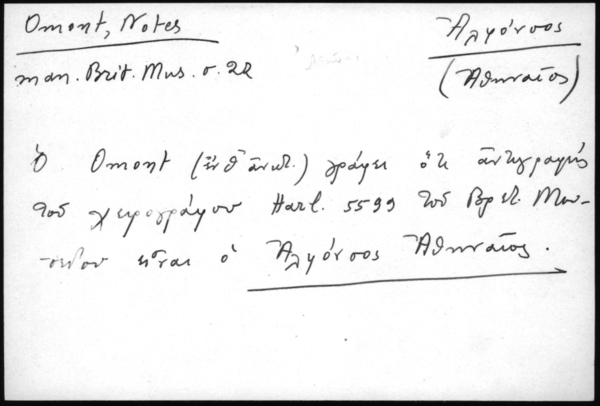 Omont, Notes
man. Brit. Mus. σ. 22
Ἀλφόνσος
(Ἀθηναῖος)
Ὁ Omont (ἔνθ' ἀνωτ.) γράφει ὅτι ἀντιγραφεὺς
τοῦ χειρογράφου Harl. 5599 τοῦ Βρετ. Μου-
σείου εἶναι ὁ Ἀλφόνσος Ἀθηναῖος.